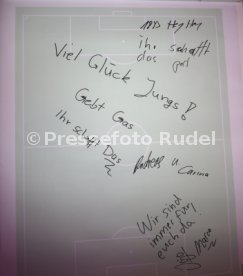 ihr schafft
das
Viel Glück Jungs!
Gebt Gas
Ihr schafft Das
© Pressefoto Rudel
Andreas u.
Carina
Wir sind
immer für
euch da!